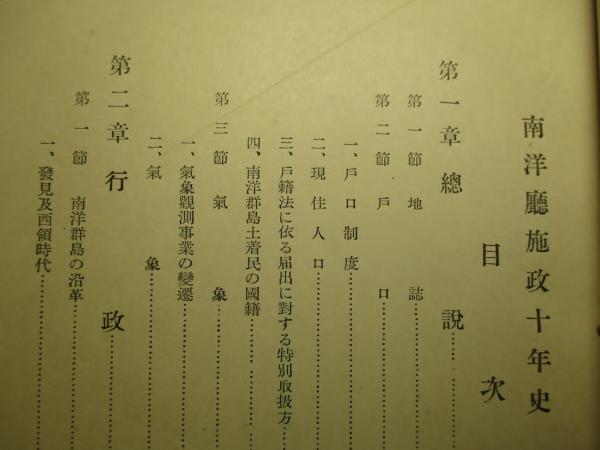 南洋廳施政十年史
目次
第一章 總說
第一節 地誌
第二節 戶口
一、戶口制度
二、現住人口
三、戶籍法に依る届出に對する特別取扱方
四、南洋群島土着民の國籍
第三節 氣象
一、氣象觀測事業の變遷
二、氣象
第二章 行政
第一節 南洋群島の沿革
一、發見及西領時代